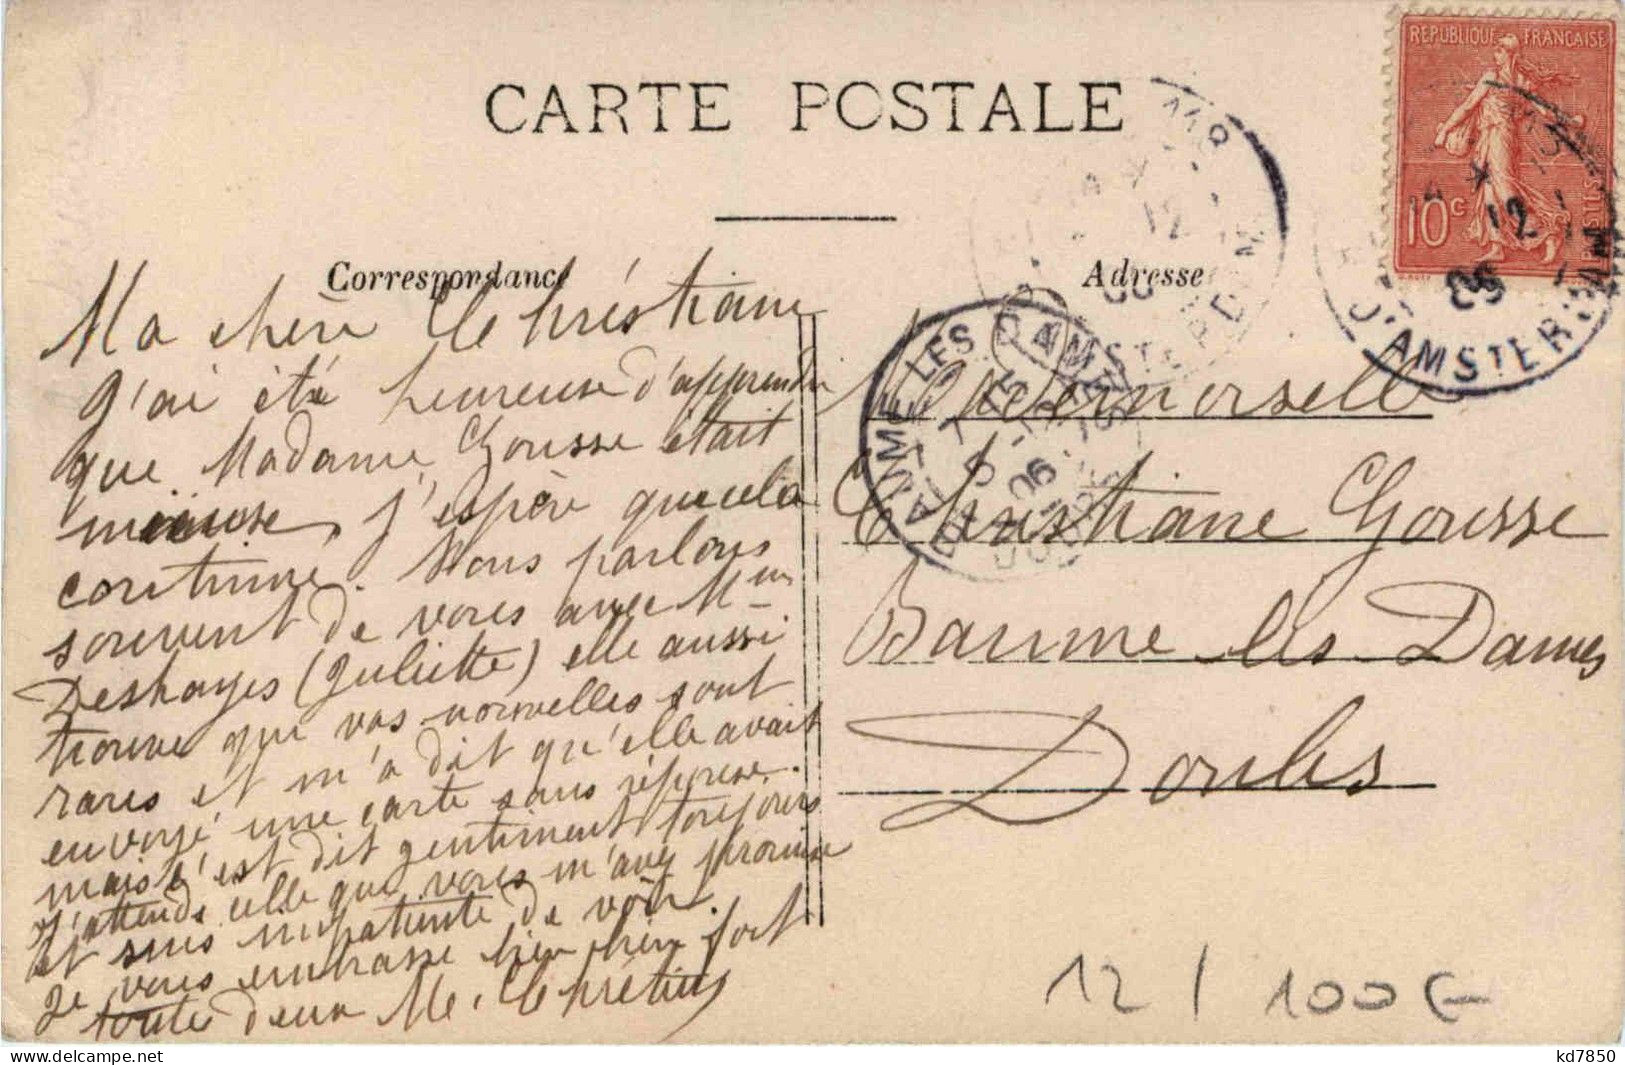 CARTE POSTALE
REPUBLIQUE FRANÇAISE
10c
POSTES
R. D'AMSTERDAM
12
06
BAUME LES DAMES
DOUBS
06
Correspondance
Adresse
Ma chère Chréstiane
J'ai été heureuse d'apprendre
que Madame Gousse était
mieuse, j'espère que cela
continue. Nous parlons
souvent de vous avec Mme
Deshayes (Juliette) elle aussi
trouve que vos nouvelles sont
rares et m'a dit qu'elle avait
envoyé une carte sans réponse.
mais c'est dit gentiment toujours
j'attends celle que vous m'avez promise
et suis impatiente de voir.
Je vous embrasse bien chère fort
toute deux M. Chrétien
Mademoiselle
Christiane Gousse
Baume les Dames
Doubs
12 / 100 €
kd7850